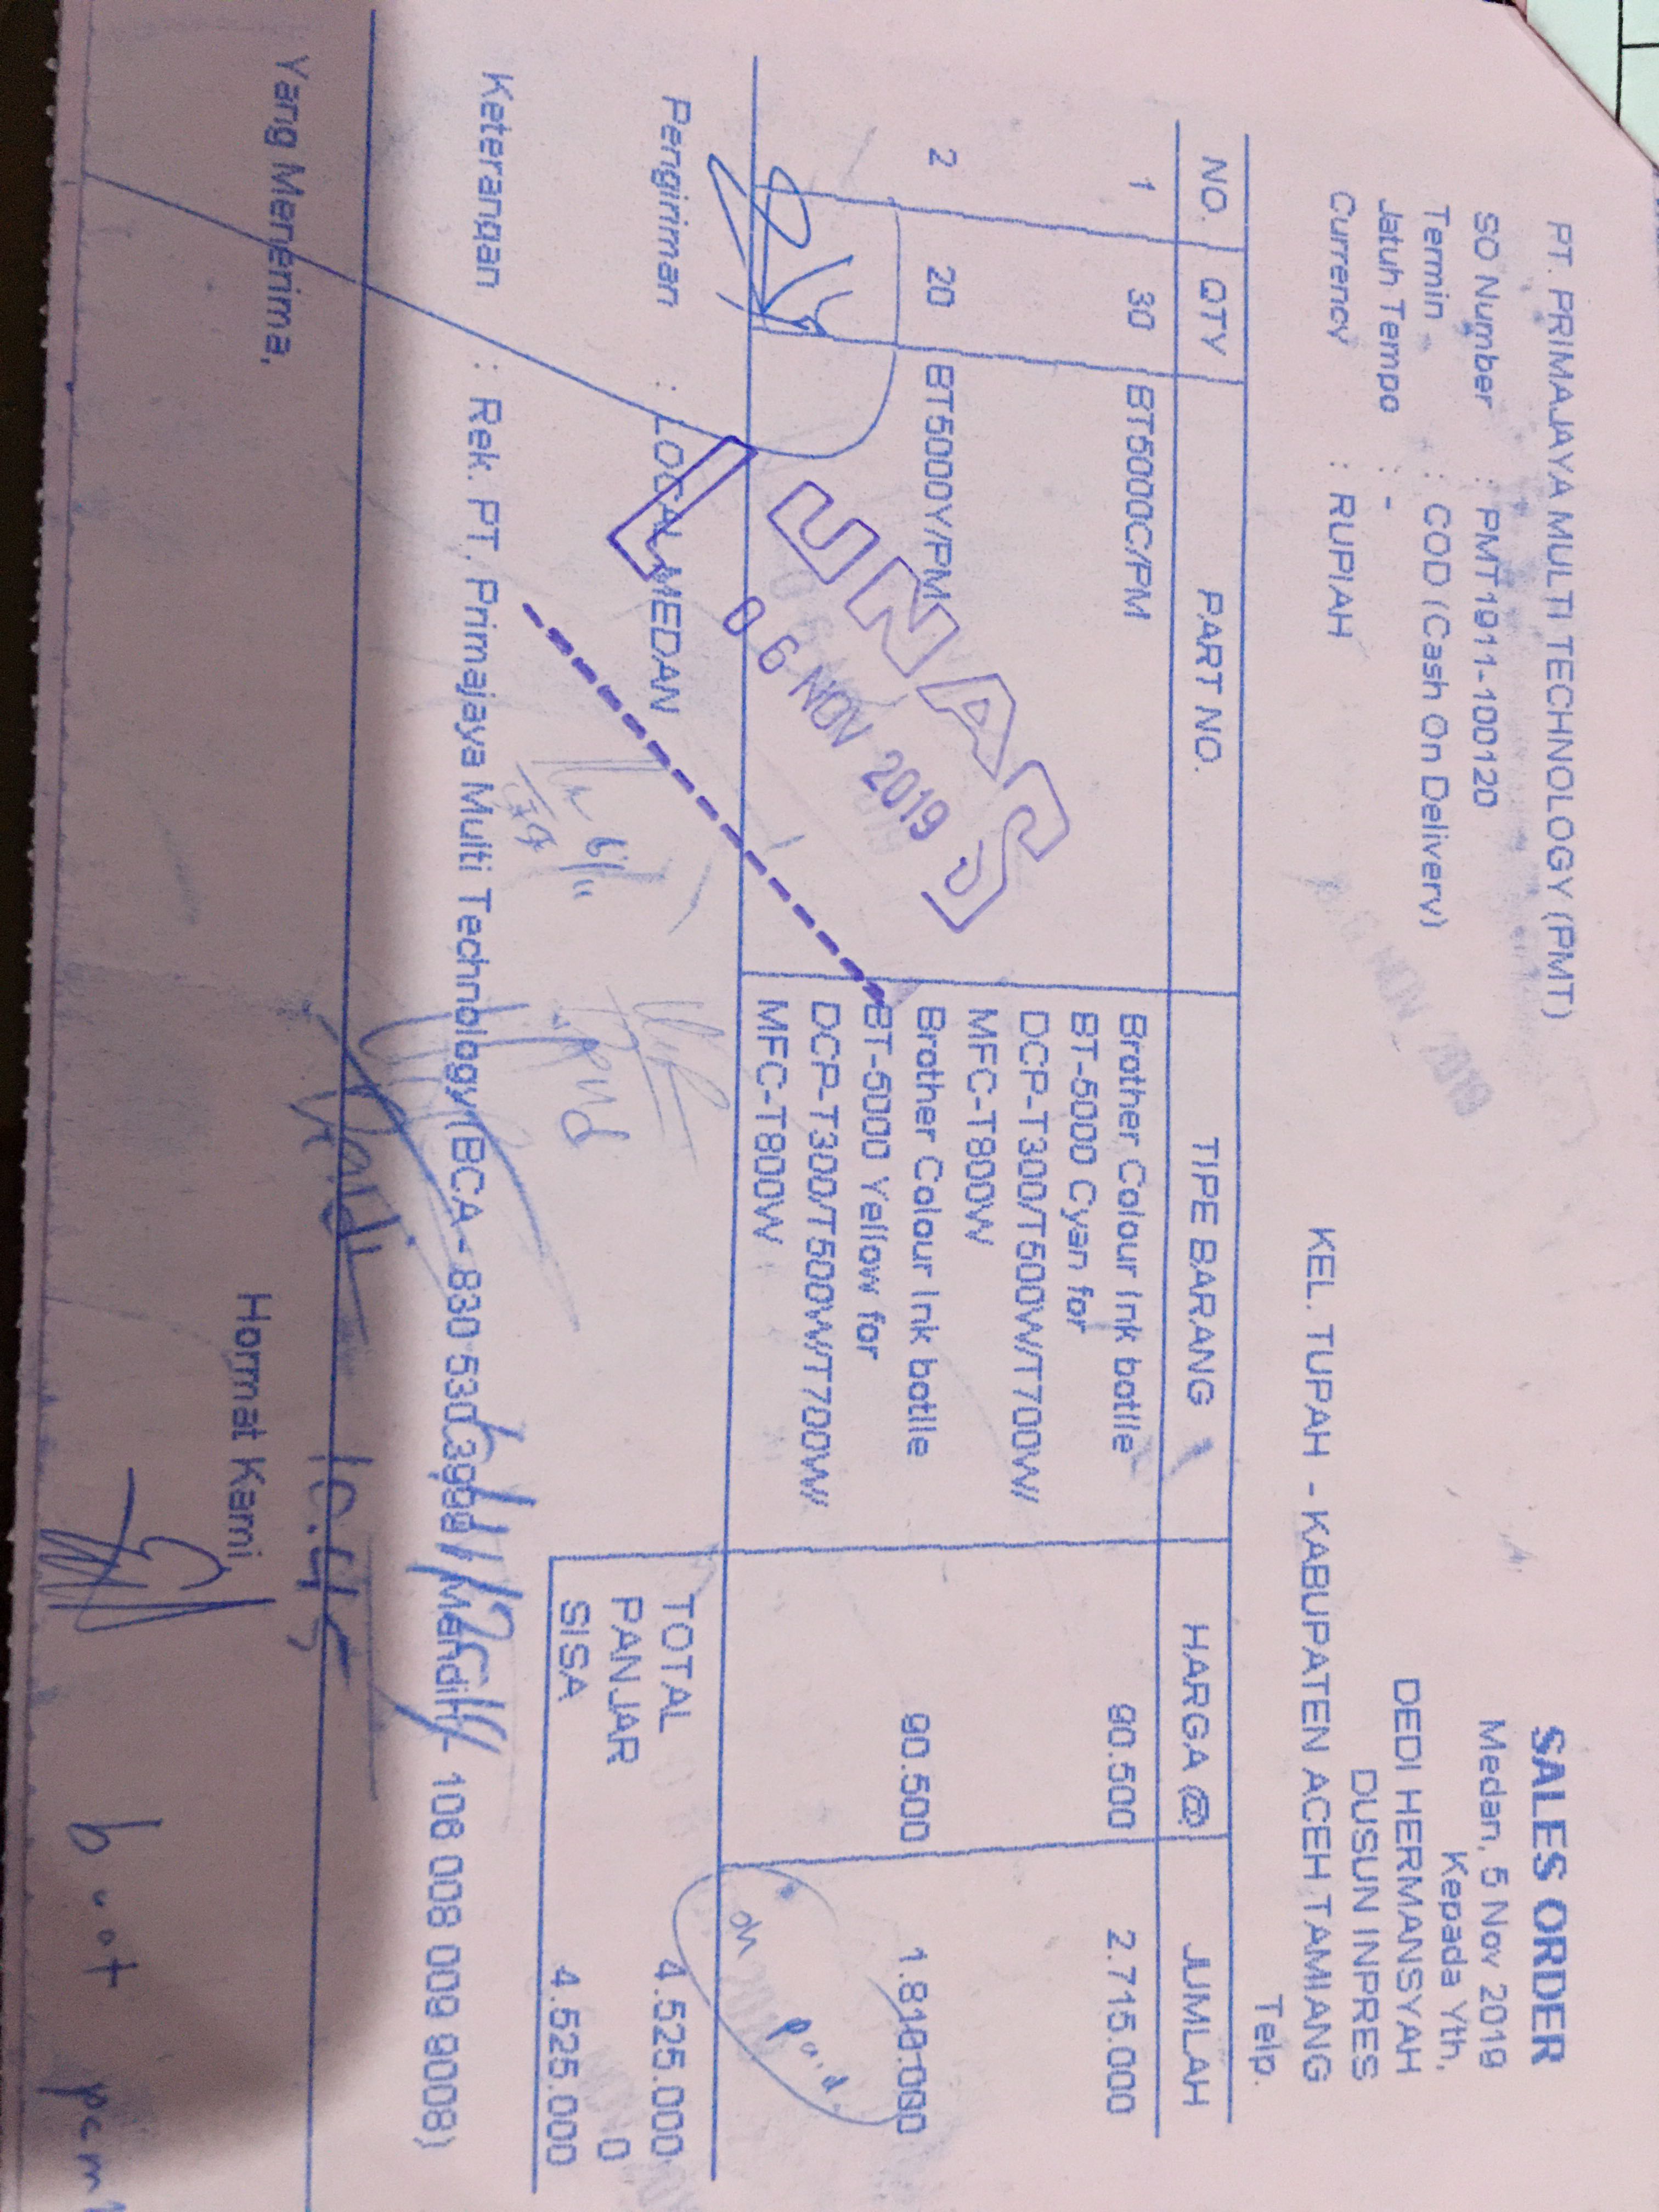 PT. PRIMAJAYA MULTI TECHNOLOGY (PMT)
SALES ORDER
SO Number : PMT1911-100120
Medan, 5 Nov 2019
Termin : COD (Cash On Delivery)
Kepada Yth,
Jatuh Tempo : -
DEDI HERMANSYAH
Currency : RUPIAH
DUSUN INPRES
KEL. TUPAH - KABUPATEN ACEH TAMIANG
Telp.
NO. QTY PART NO. TIPE BARANG HARGA @ JUMLAH
1 30 BT5000C/PM Brother Colour Ink botlle 90.500 2.715.000
BT-5000 Cyan for
DCP-T300/T500W/T700W/
MFC-T800W
2 20 BT5000Y/PM Brother Colour Ink botlle 90.500 1.810.000
BT-5000 Yellow for
DCP-T300/T500W/T700W/
MFC-T800W
LUNAS
06 NOV 2019
Paid
Pengiriman : LOCAL MEDAN
TOTAL 4.525.000
PANJAR 0
SISA 4.525.000
Keterangan : Rek. PT. Primajaya Multi Technology(BCA - 830 530 3988 / Mandiri - 106 008 008 9008)
10.45
Yang Menerima,
Hormat Kami